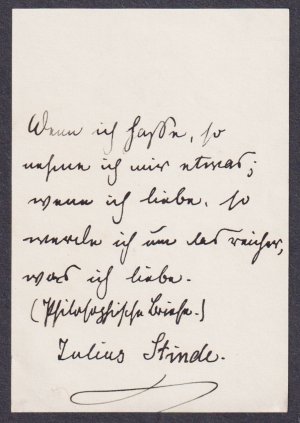 Wenn ich hasse, so
nehme ich mir etwas;
wenn ich liebe, so
werde ich um das reicher,
was ich liebe.
(Philosophische Briefe.)
Julius Stinde.